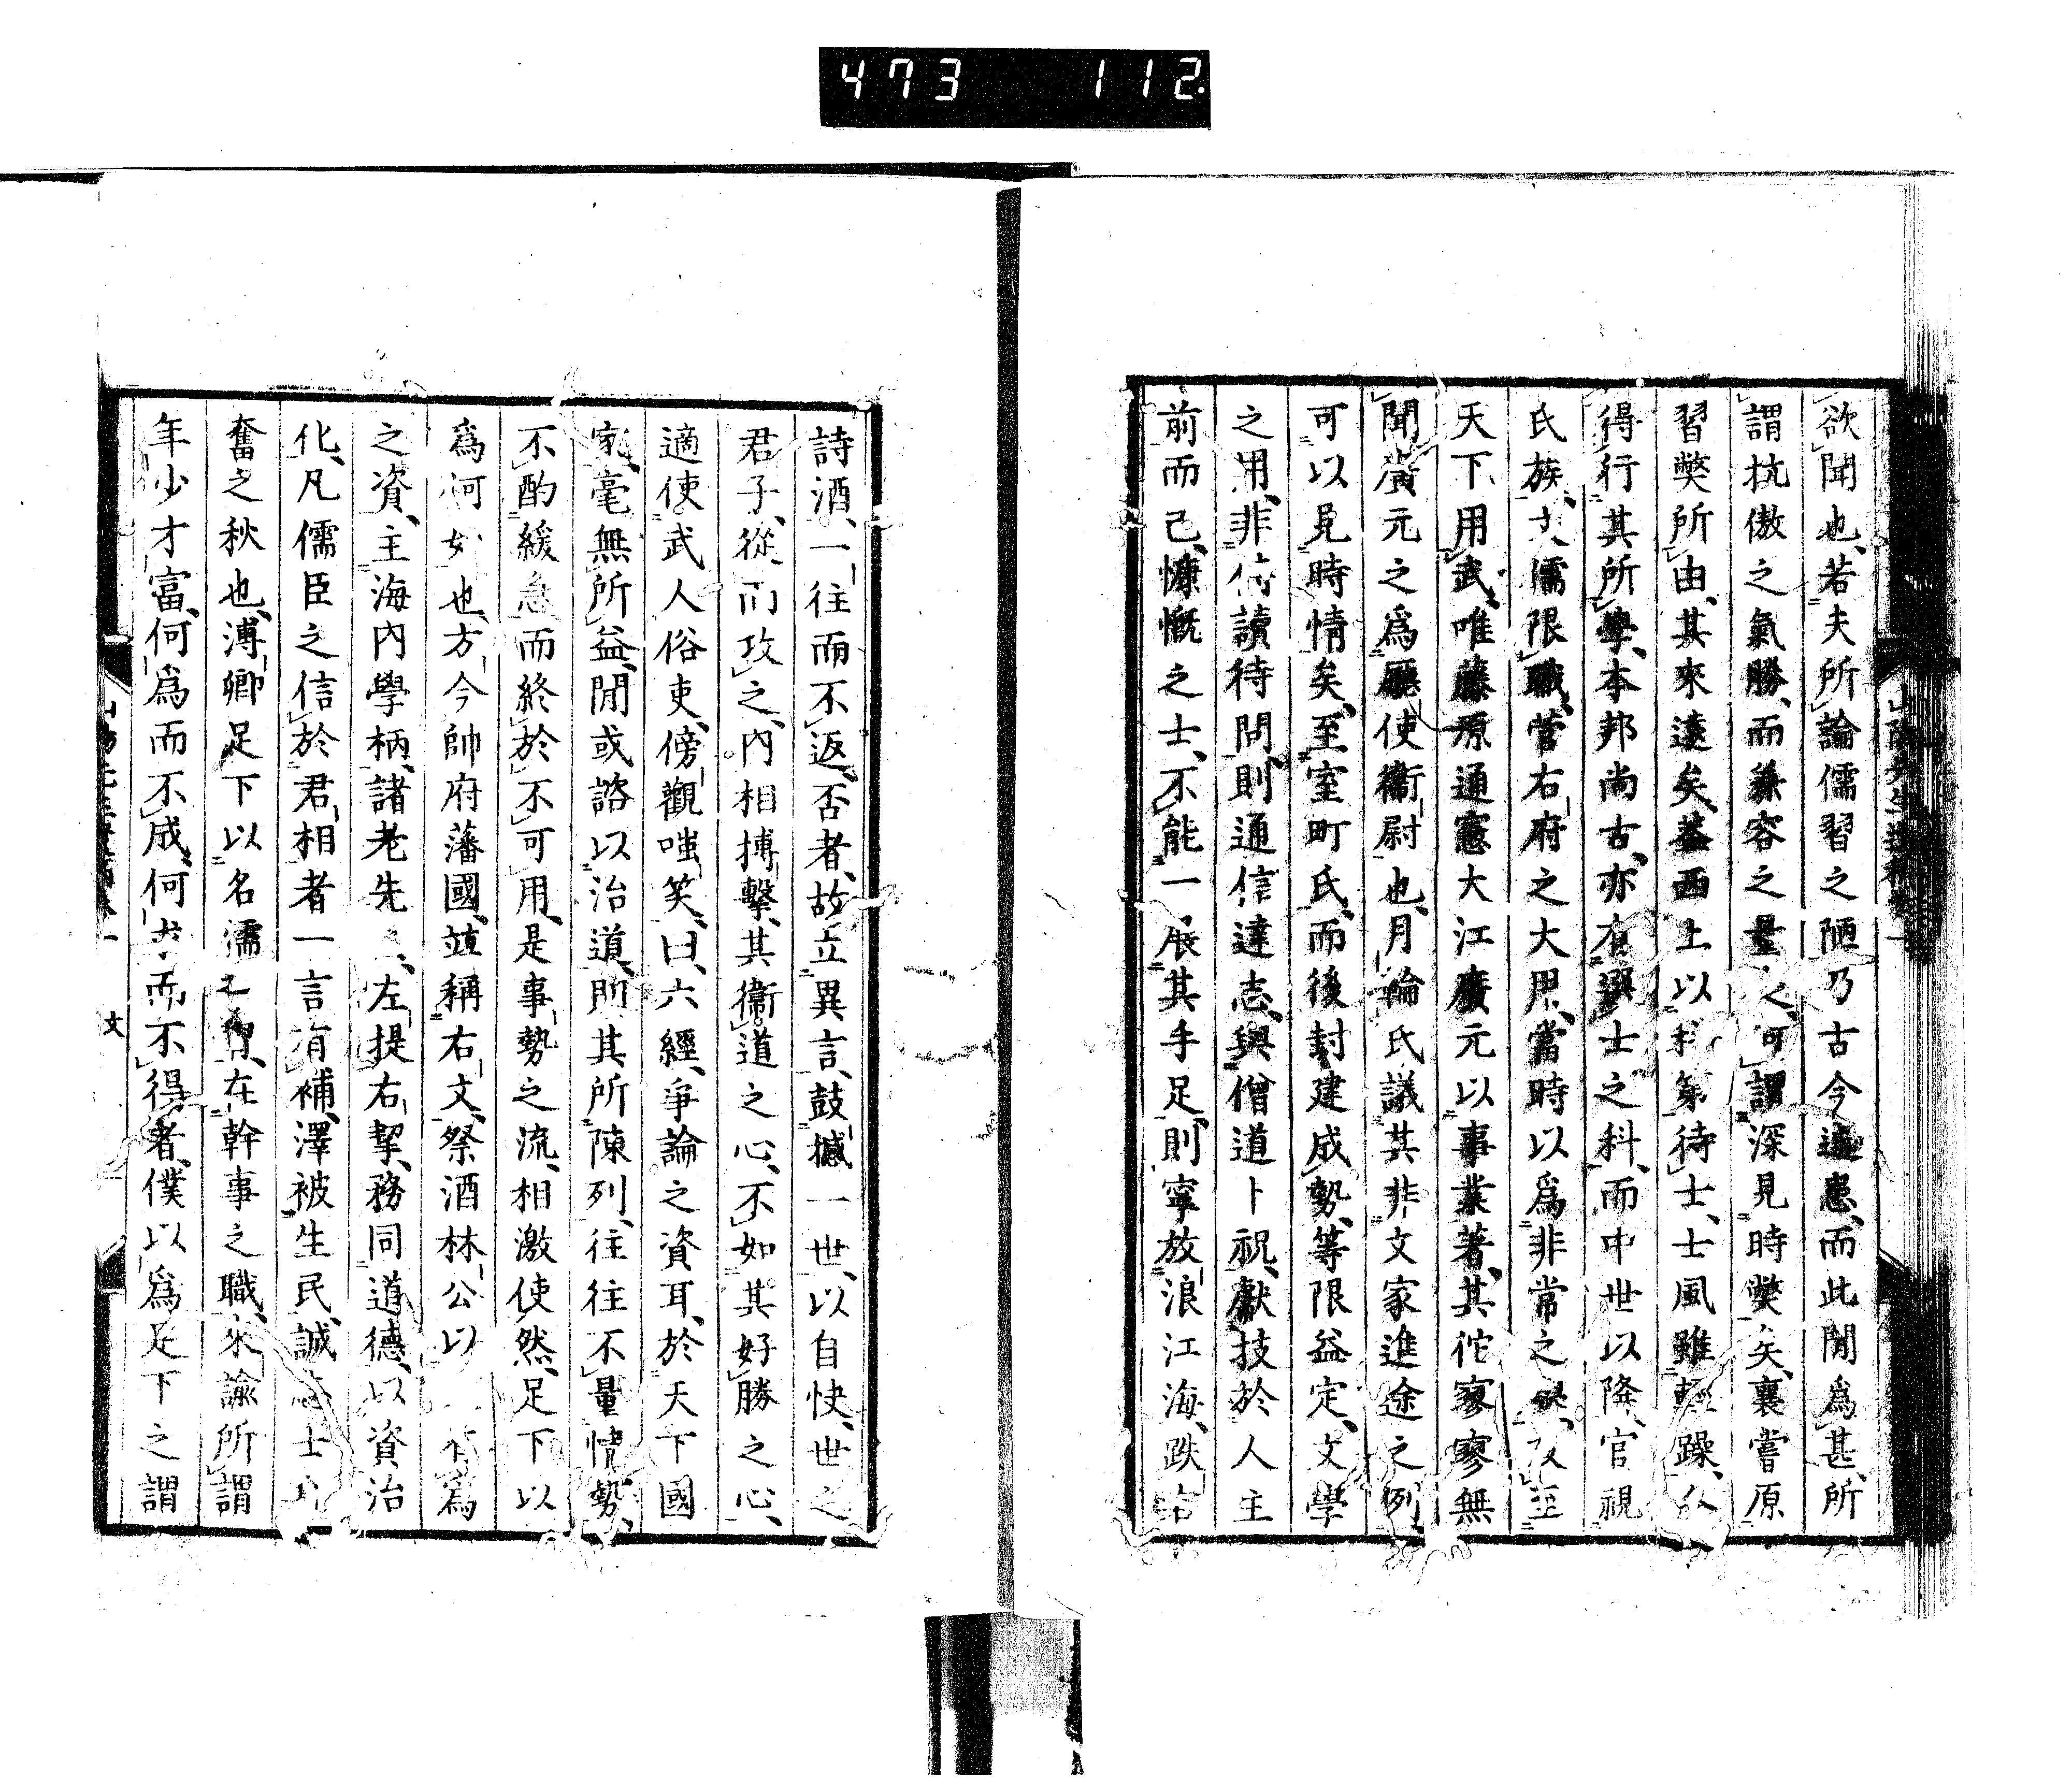 473 112
欲聞也、若夫所論儒習之陋乃古今通患、而此間爲甚、所
謂抗傲之氣勝、而兼容之量、可謂深見時獘矣、襄嘗原
習獘所由、其來遠矣、葢西土以科第待士、士風雖輕躁、
得行其所學、本邦尚古、亦有選士之科、而中世以降、官視
氏族、大儒限職、菅右府之大用、當時以爲非常之 至
天下用武、唯藤原通憲大江廣元以事業著、其佗寥寥無
聞、廣元之爲廳使衞尉也、月輪氏議其非文家進途之例、
可以見時情矣、至室町氏、而後封建成勢、等限益定、文學
之用、非侍讀待問、則通信達志、與僧道卜祝、獻技於人主
前而已、慷慨之士、不能一展其手足、則寧放浪江海、跌宕
詩酒、一往而不返、否者、故立異言、鼓撼一世、以自快、世之
君子、從而攻之、內相搏擊、其衞道之心、不如其好勝之心、
適使武人俗吏、傍觀嗤笑、曰、六經、爭論之資耳、於天下國
家、毫無所益、閒或諮以治道、則其所陳列、往往不量情勢、
不酌緩急而終於不可用、是事勢之流、相激使然、足下以
爲何如也、方今帥府藩國、竝稱右文、祭酒林公以 爲
之資、主海內學柄、諸老先 、左提右挈、務同道德、以資治
化、凡儒臣之信於君相者一言有補、澤被生民、誠志士
奮之秋也、溥卿足下以名儒之 、在幹事之職、來諭所謂
年少才富、何爲而不成、何求而不得者、僕以爲足下之謂
文